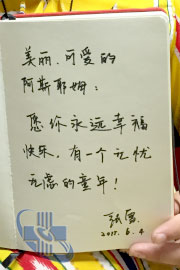 美丽、可爱的
阿斯耶姆：
愿你永远幸福
快乐，有一个无忧
无虑的童年！
2015.6.4